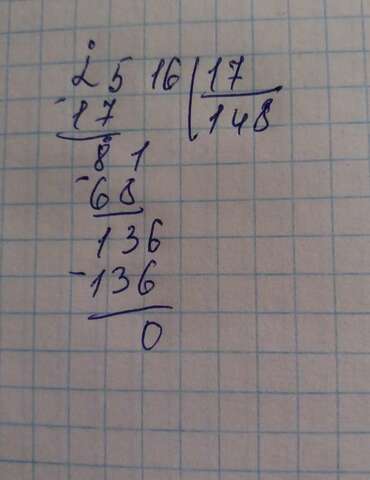 2516 | 17
-17 148
81
-68
136
-136
0